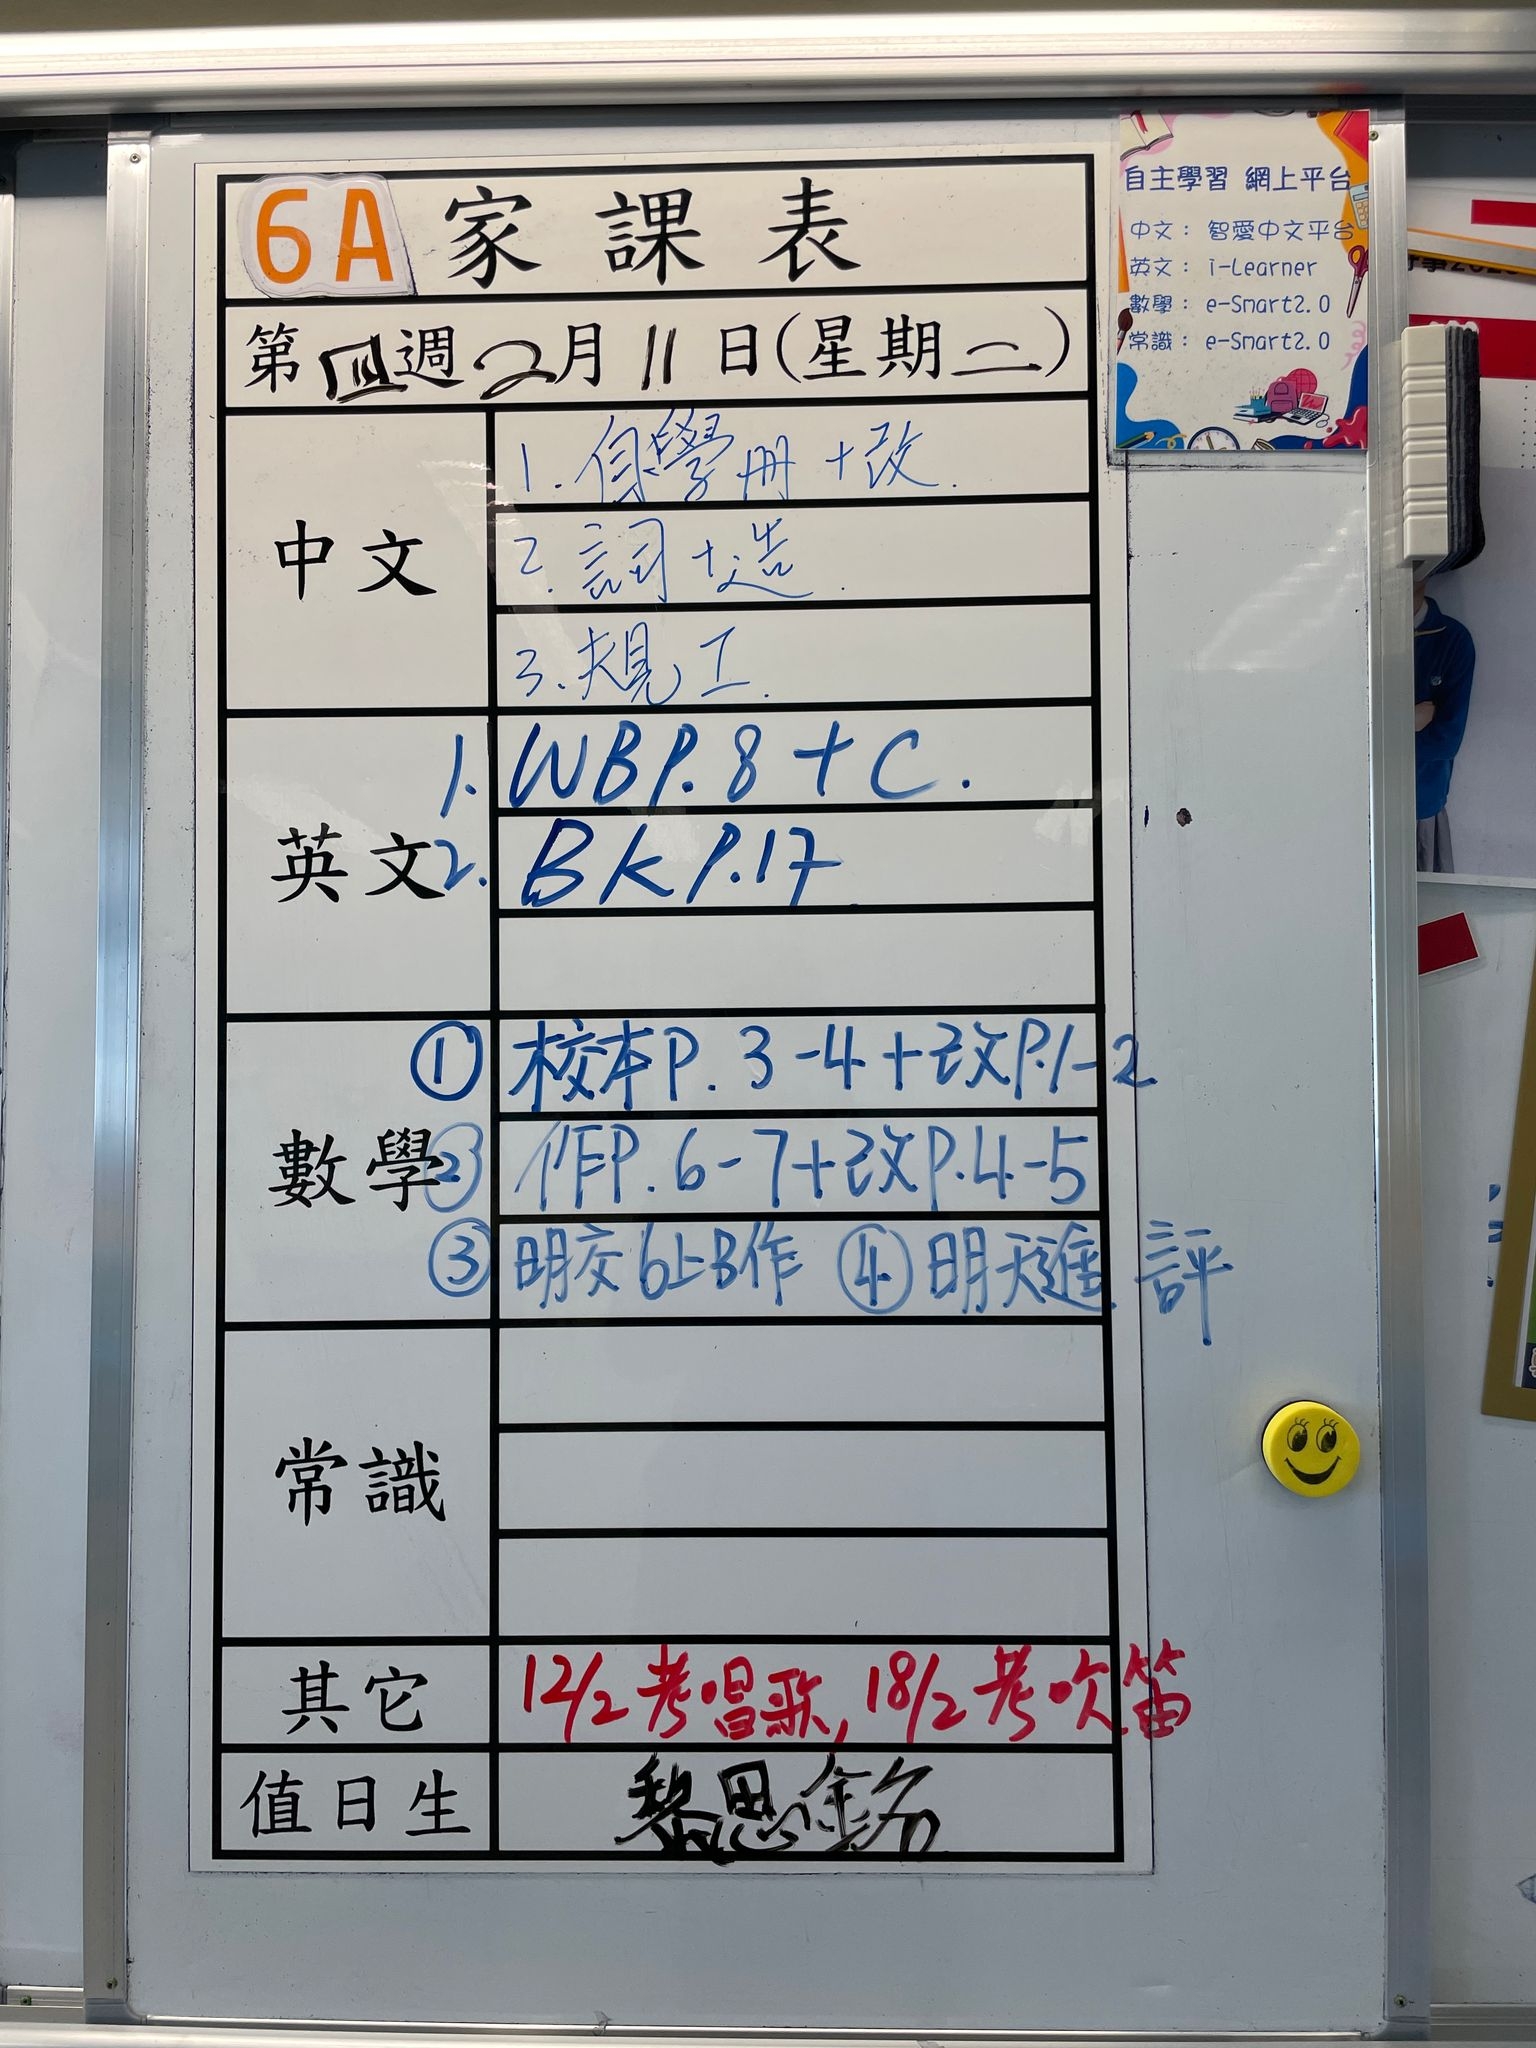 6A 家課表
第四週2月11日(星期二)
中文
1. 自學冊+改.
2. 詞+造.
3. 規工.
英文
1. WB P.8 + C.
2. BK P.17
數學
① 校本P.3-4+改P.1-2
② 作P.6-7+改P.4-5
③ 明交6上B作 ④ 明天進評
常識
其它
12/2考唱歌, 18/2考吹笛
值日生
黎思
自主學習 網上平台
中文： 智愛中文平台
英文： i-Learner
數學： e-Smart2.0
常識： e-Smart2.0